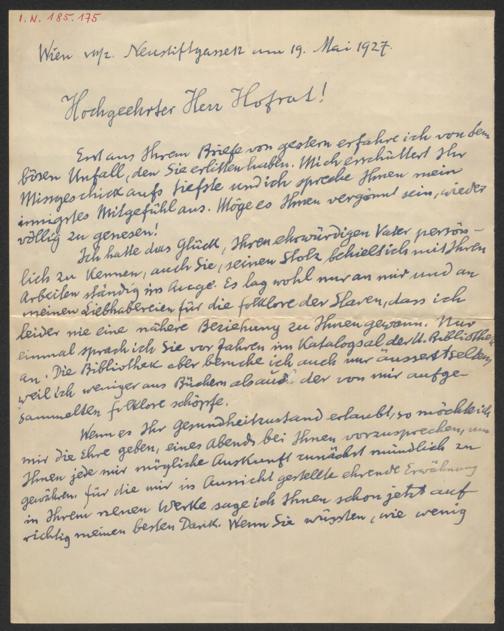 I.N. 185.175
Wien VII/2. Neustiftgasse 12 am 19. Mai 1927.
Hochgeehrter Herr Hofrat!
Erst aus Ihrem Briefe von gestern erfahre ich von dem
bösen Unfall, den Sie erlitten haben. Mich erschüttert Ihr
Missgeschick aufs tiefste und ich spreche Ihnen mein
innigstes Mitgefühl aus. Möge es Ihnen vergönnt sein, wieder
völlig zu genesen!
Ich hatte das Glück, Ihren ehrwürdigen Vater persön-
lich zu kennen, auch Sie, seinen Stolz behielt ich mit Ihren
Arbeiten ständig im Auge. Es lag wohl nur an mir und an
meinen Liebhabereien für die folklore der Slaven, dass ich
leider nie eine nähere Beziehung zu Ihnen gewann. Nur
einmal sprach ich Sie vor Jahren im Katalogsal der U. Bibliothek
an. Die Bibliothek aber besuche ich auch nur äussert selten,
weil ich weniger aus Büchern als aus der von mir aufge-
sammelten folklore schöpfe.
Wenn es Ihr Gesundheitzustand erlaubt, so möchte ich
mir die Ehre geben, eines Abends bei Ihnen vorzusprechen, um
Ihnen jede mir mögliche Auskunft zunächst mündlich zu
gewähren. für die mir in Aussicht gestellte ehrende Erwähnung
in Ihrem neuen Werke sage ich Ihnen schon jetzt auf
richtig meinen besten Dank. Wenn Sie wüssten, wie wenig